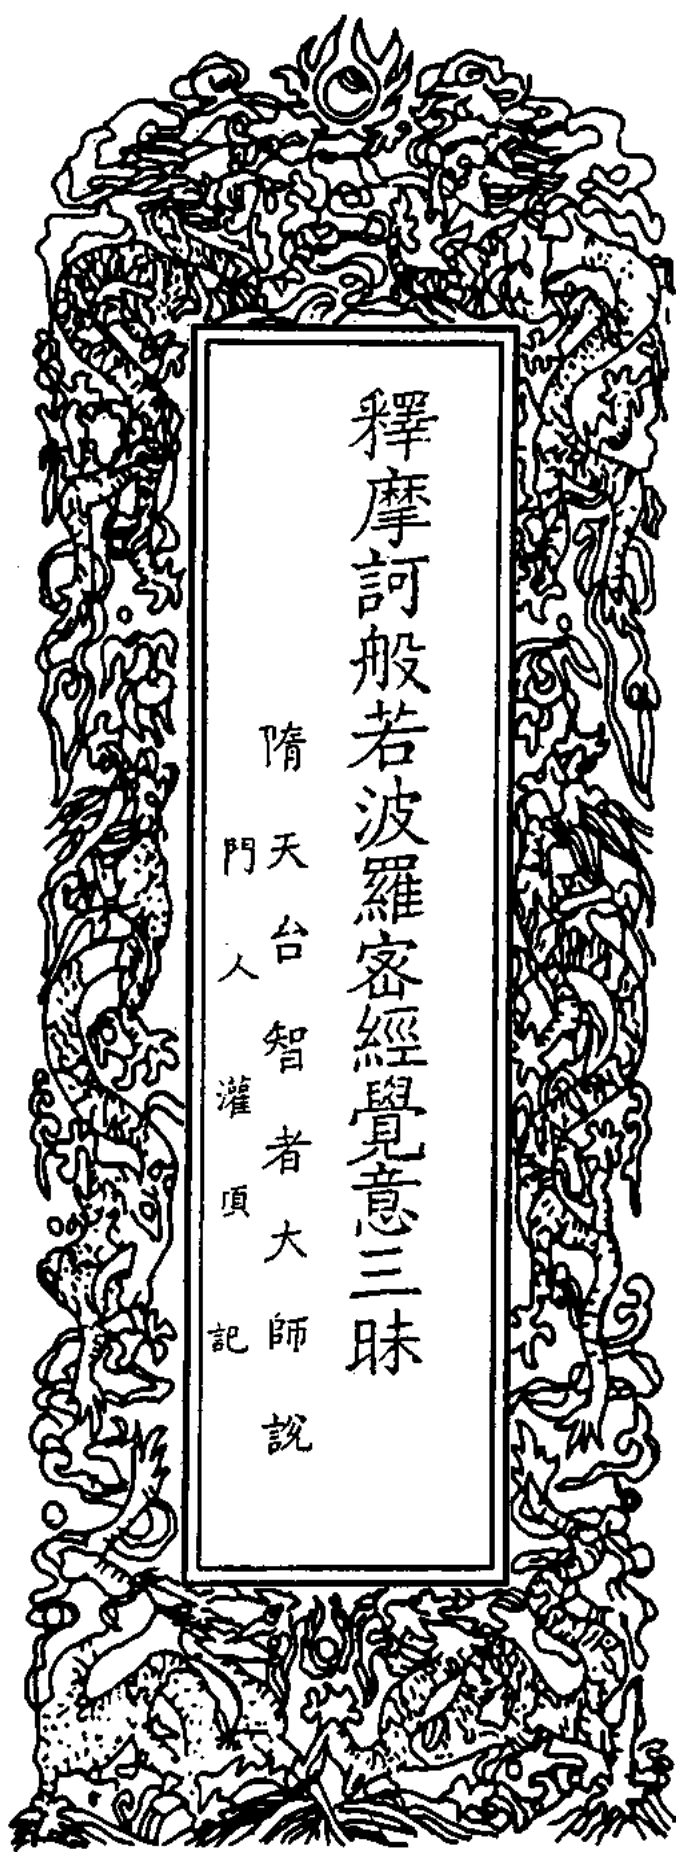 釋摩訶般若波羅密經覺意三昧
隋天台智者大師說
門人灌頂記